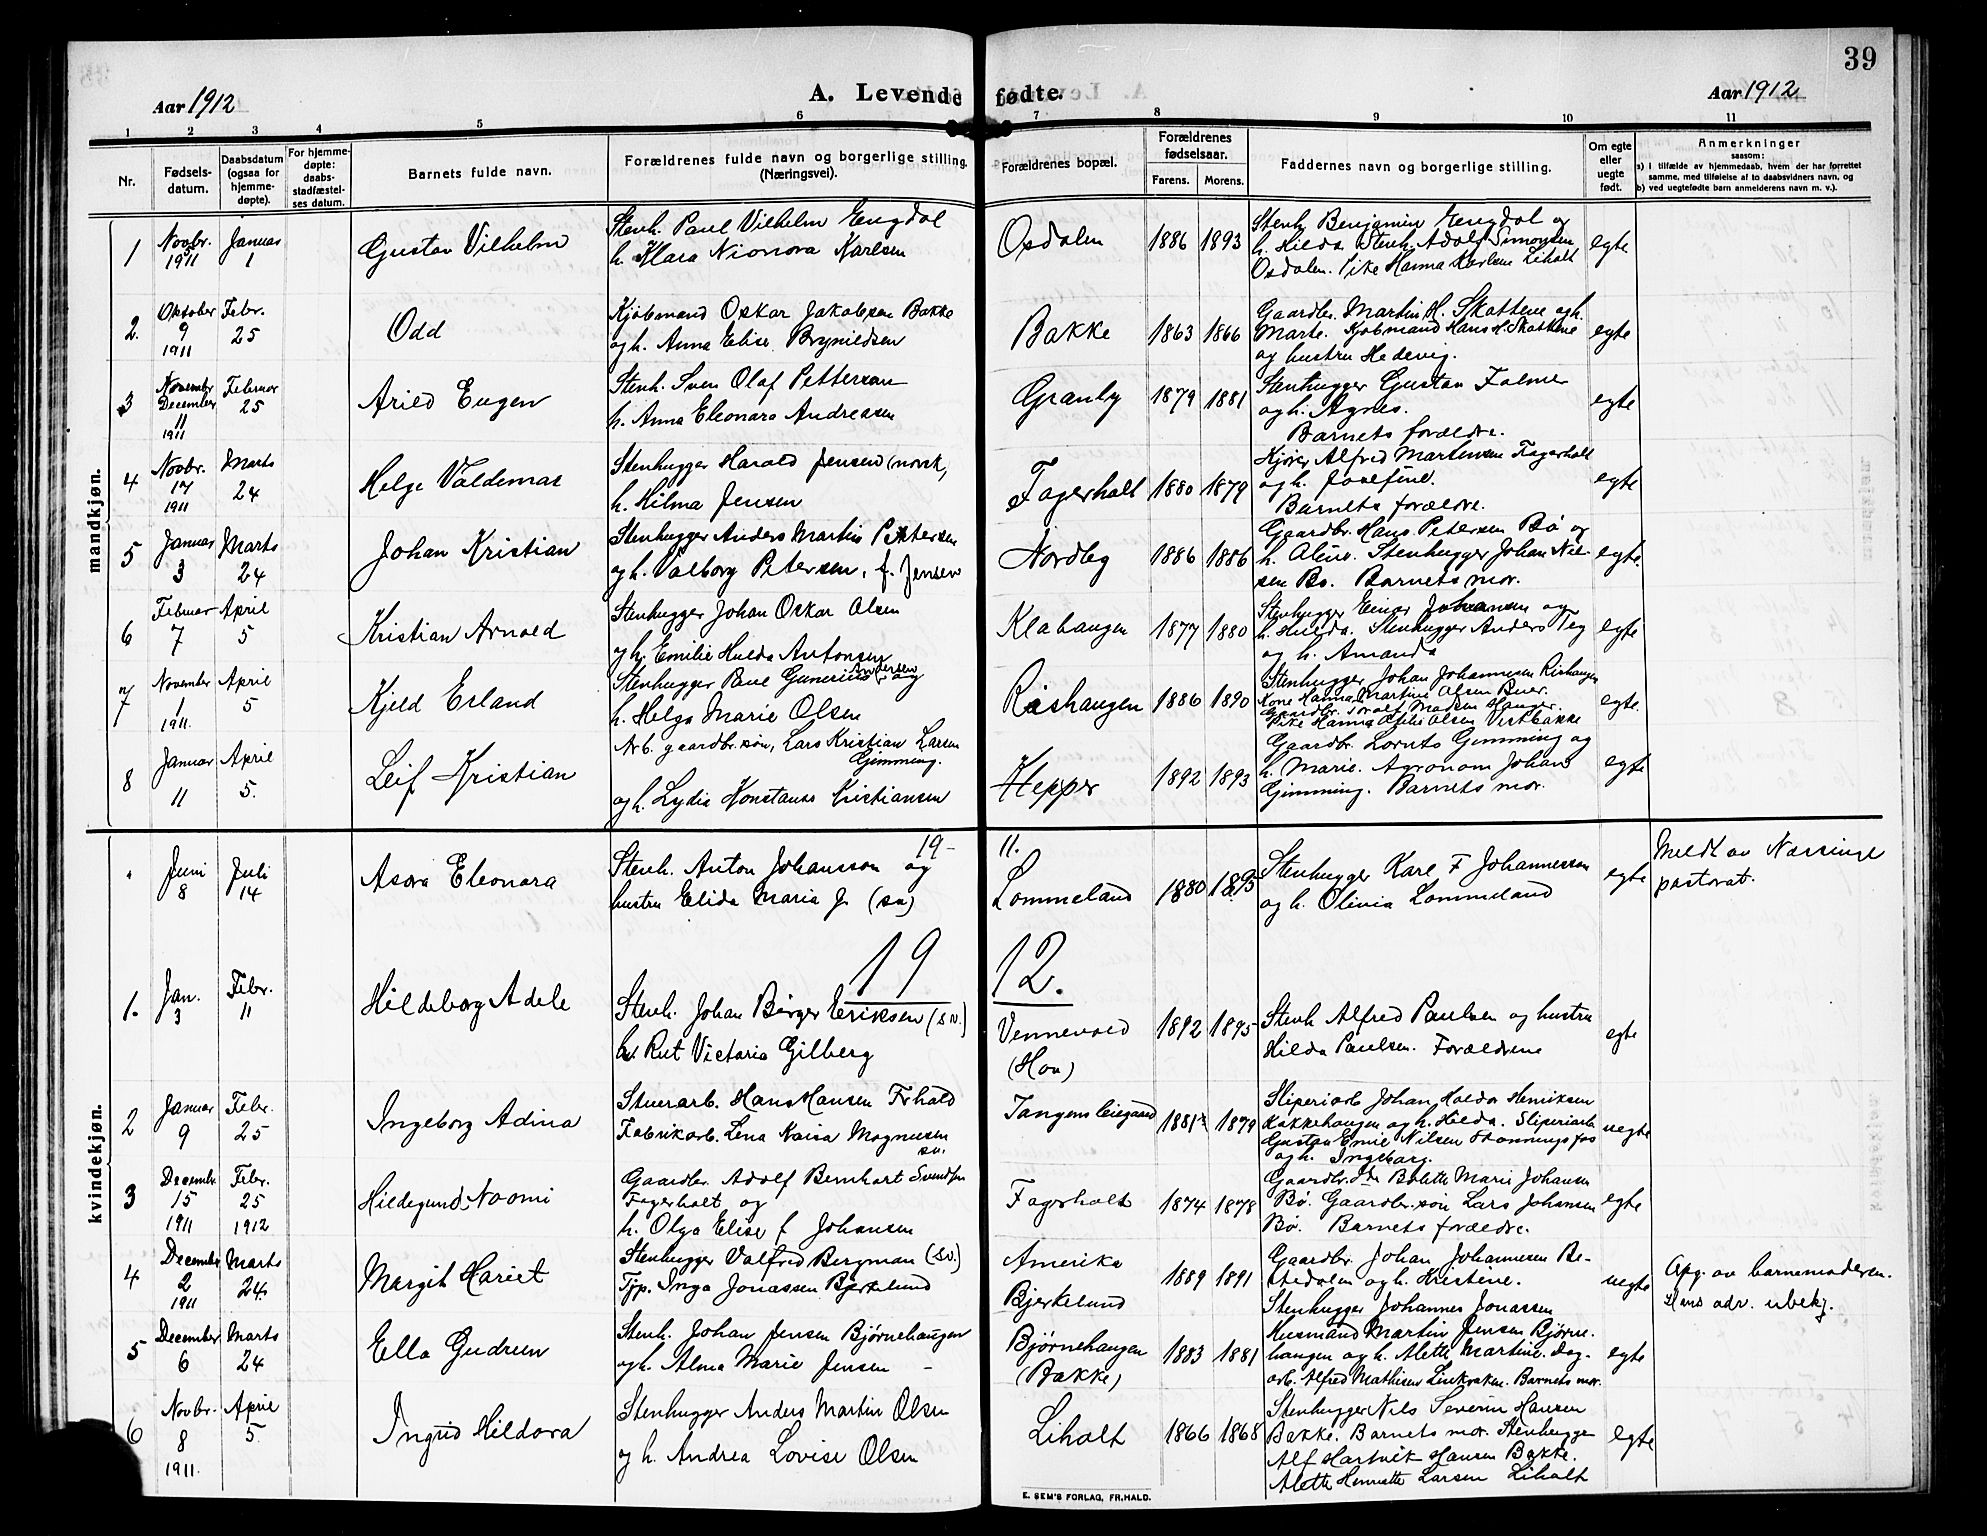 39
Aar 1912
A. Levende fødte.
Aar 1912
1 2 3 4 5 6 7 8 9 10 11
Nr.
Fødsels-
datum.
Daabsdatum
(ogsaa for
hjemme-
døpte).
For hjemme-
døpte:
daabs-
stadfæstel-
ses datum.
Barnets fulde navn.
Forældrenes fulde navn og borgerlige stilling.
(Næringsvei).
Forældrenes bopæl.
Forældrenes
fødselsaar.
Farens. Morens.
Faddernes navn og borgerlige stilling.
Om egte
eller
uegte
født.
Anmerkninger
saasom:
a) i tilfælde av hjemmedaab, hvem der har forrettet
samme, med tilføielse af to daabsvidners navn, og
b) ved uegtefødte børn anmelderens navn m. v.).
mandkjøn.
1
Novbr.
1911
Januar
1
Gustav Vilhelm
Stenh. Paul Vilhelm Engdal
h. Klara Nionora Karlsen
Osdalen
1886 1893
Stenh. Benjamin Engdal og
h. Hilda. Stenh. Adolf Simonsen
Osdalen. Pike Hanna Karlsen Liholt
egte
2.
Oktober
9
1911
Febr.
25
Odd
Kjøbmand Oskar Jakobsen Bakke
og h. Anna Elise Brynildsen
Bakke
1863 1866
Gaardbr. Martin H. Skottene og h.
Marte. Kjøbmand Hans H. Skottene
og hustru Hedevig.
egte
3
November
December
11
1911
Februar
25
Arild Eugen
Stenh. Sven Olaf Petterson
h. Anna Eleonara Andreasen
Granly
1879 1881
Stenhugger Gustav Falmer
og h. Agnes.
Barnets forældre.
egte
4
Novbr.
17
1911
Marts
24
Helge Valdemar
Stenhugger Harald Jensen (norsk,
h. Hilma Jensen
Fagerholt
1880 1879
Kjører Alfred Martensen Fagerholt
og h. Josefine.
Barnets forældre.
egte
5
Januar
3
Marts
24
Johan Kristian
Stenhugger Anders Martin Petersen
og h. Valborg Petersen, f. Jensen
Nordby
1886 1886
Gaardbr. Hans Petersen Bø og
h. Aline. Stenhugger Johan Niel-
sen Bø. Barnets mor.
egte.
6
Februar
7
April
5
Kristian Arnold
Stenhugger Johan Oskar Olsen
og h. Emilie Hulda Antonsen
Klahaugen
1877 1880
Stenhugger Einar Johansen og
h. Hulda. Stenhugger Anders Teg
og h. Amanda
egte
7
November
1
1911.
April
5
Kjeld Erland
Stenhugger Paul Gunerius Andersen og
h. Helga Marie Olsen
Rishaugen
1886 1890
Stenhugger Johan Johannesen Rishaugen
Kone Hanna Martine Olsen Buer.
Gaardbr. Toralf Madsen Hauger.
Pike Hanna Otilie Olsen Vestbakke
egte.
8
Januar
11
April
5.
Leif Kristian
Arb. gaardbr.søn, Lars Kristian Larsen
Gimming.
og h. Lydia Konstanse Kristiansen
Hepper
1892 1893
Gaardbr. Lorents Gimming og
h. Marie. Agronom Johan
Gimming. Barnets mor.
egte
19- 11.
Juni
8
Juli
14
Asora Eleonora
Stenh. Anton Johansson og
hustru Elida Maria J. (sv)
Lommeland
1880 1895
Stenhugger Karl F Johannessen
og h. Olivia Lommeland
egte
Meldt av Næsinge
pastorat.
19 12.
kvindekjøn.
1.
Jan.
3
Febr.
11
Hildeborg Adele
Stenh. Johan Birger Eriksen (sv.)
h. Rut Victoria Gilberg
Vennevold
(Hov)
1892 1895
Stenh Alfred Paulsen og hustru
Hilda Paulsen. Forældrene
egte
2
Januar
9
Febr.
25
Ingeborg Adina
Stuerarb. Hans Hansen Frhald
Fabrikarb. Lena Kaisa Magnusen
sv.
Tangens leiegaard
1881 1879
Sliperiarb Johan Haldor Henriksen
Kakkehaugen og h. Hilda. Sliperiarb
Gustav Emil Nilsen Skonningsfos
og h. Ingeborg.
uegte
3
Decembr.
15
1911
Febr.
25
1912
Hildegund Naomi
Gaardbr. Adolf Bernhart Svendsen
Fagerholt og
h. Olga Elise f Johansen
Fagerholt
1874 1878
Gaardbr. Bolette Marie Johansen
Bø. Gaardbr.søn Lars Johansen
Bø. Barnets forældre.
egte
4
December
2
1911
Marts
24.
Margit Hariet
Stenhugger Valfred Bergman (sv.)
Tjp. Inga Jonassen Bjerkelund
Amerika
Bjerkelund
1889 1891
Gaardbr. Johan Johannesen Be-
stedalen og h. Kristine.
Stenhugger Johannes Jonassen
uegte
Opg. av barnemoderen.
Hans adr. ubekj.
5
December
6
Marts
24
Ella Gudrun
Stenh. Johan Jensen Bjørnehaugen
og h. Alma Marie Jensen -
Bjørnehaugen
(Bakke)
1883 1881
Husmand Martin Jensen Bjørne-
haugen og h. Alette Martine. Dag-
arb. Alfred Mathisen Linkroken. Barnets mor.
egte
6
Novbr.
8
1911.
April
5.
Ingrid Hildora
Stenhugger Anders Martin Olsen
og h. Andrea Lovise Olsen
Liholt
1866 1868
Stenhugger Nils Severin Hansen
Bakke. Barnets mor. Stenhugger
Alf Hartvik Hansen Bakke.
Alette Henriette Larsen Liholt
egte
E. SEM'S FORLAG, FR.HALD.